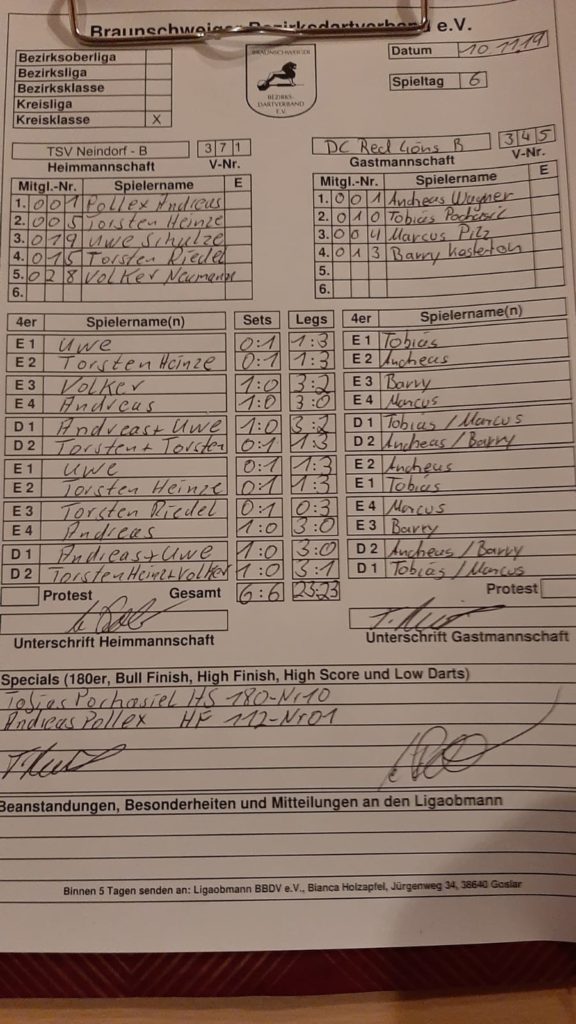 Braunschweiger Bezirksdartverband e.V.
Bezirksoberliga
Bezirksliga
Bezirksklasse
Kreisliga
Kreisklasse X
BRAUNSCHWEIGER
BEZIRKS-
DARTVERBAND
E.V.
Datum 10.11.19
Spieltag 6
TSV Neindorf - B 3 7 1
Heimmannschaft V-Nr.
DC Red Lions B 3 4 5
Gastmannschaft V-Nr.
Mitgl.-Nr. Spielername E
1. 0 0 1 Pollex Andreas
2. 0 0 5 Torsten Heinze
3. 0 1 9 Uwe Schulze
4. 0 1 5 Torsten Riedel
5. 0 2 8 Volker Neumann
6.
Mitgl.-Nr. Spielername E
1. 0 0 1 Andreas Wagner
2. 0 1 0 Tobias
3. 0 0 4 Marcus Pilz
4. 0 1 3 Barry
5.
6.
4er Spielername(n) Sets Legs 4er Spielername(n)
E 1 Uwe 0:1 1:3 E 1 Tobias
E 2 Torsten Heinze 0:1 1:3 E 2 Andreas
E 3 Volker 1:0 3:2 E 3 Barry
E 4 Andreas 1:0 3:0 E 4 Marcus
D 1 Andreas + Uwe 1:0 3:2 D 1 Tobias / Marcus
D 2 Torsten + Torsten 0:1 1:3 D 2 Andreas / Barry
E 1 Uwe 0:1 1:3 E 2 Andreas
E 2 Torsten Heinze 0:1 1:3 E 1 Tobias
E 3 Torsten Riedel 0:1 0:3 E 4 Marcus
E 4 Andreas 1:0 3:0 E 3 Barry
D 1 Andreas + Uwe 1:0 3:0 D 2 Andreas / Barry
D 2 Torsten Heinz + Volker 1:0 3:1 D 1 Tobias / Marcus
Protest Gesamt 6:6 23:23 Protest
Unterschrift Heimmannschaft
Unterschrift Gastmannschaft
Specials (180er, Bull Finish, High Finish, High Score und Low Darts)
Tobias Pochasiel HS 180-Nr10
Andreas Pollex HF 112-Nr01
Beanstandungen, Besonderheiten und Mitteilungen an den Ligaobmann
Binnen 5 Tagen senden an: Ligaobmann BBDV e.V., Bianca Holzapfel, Jürgenweg 34, 38640 Goslar